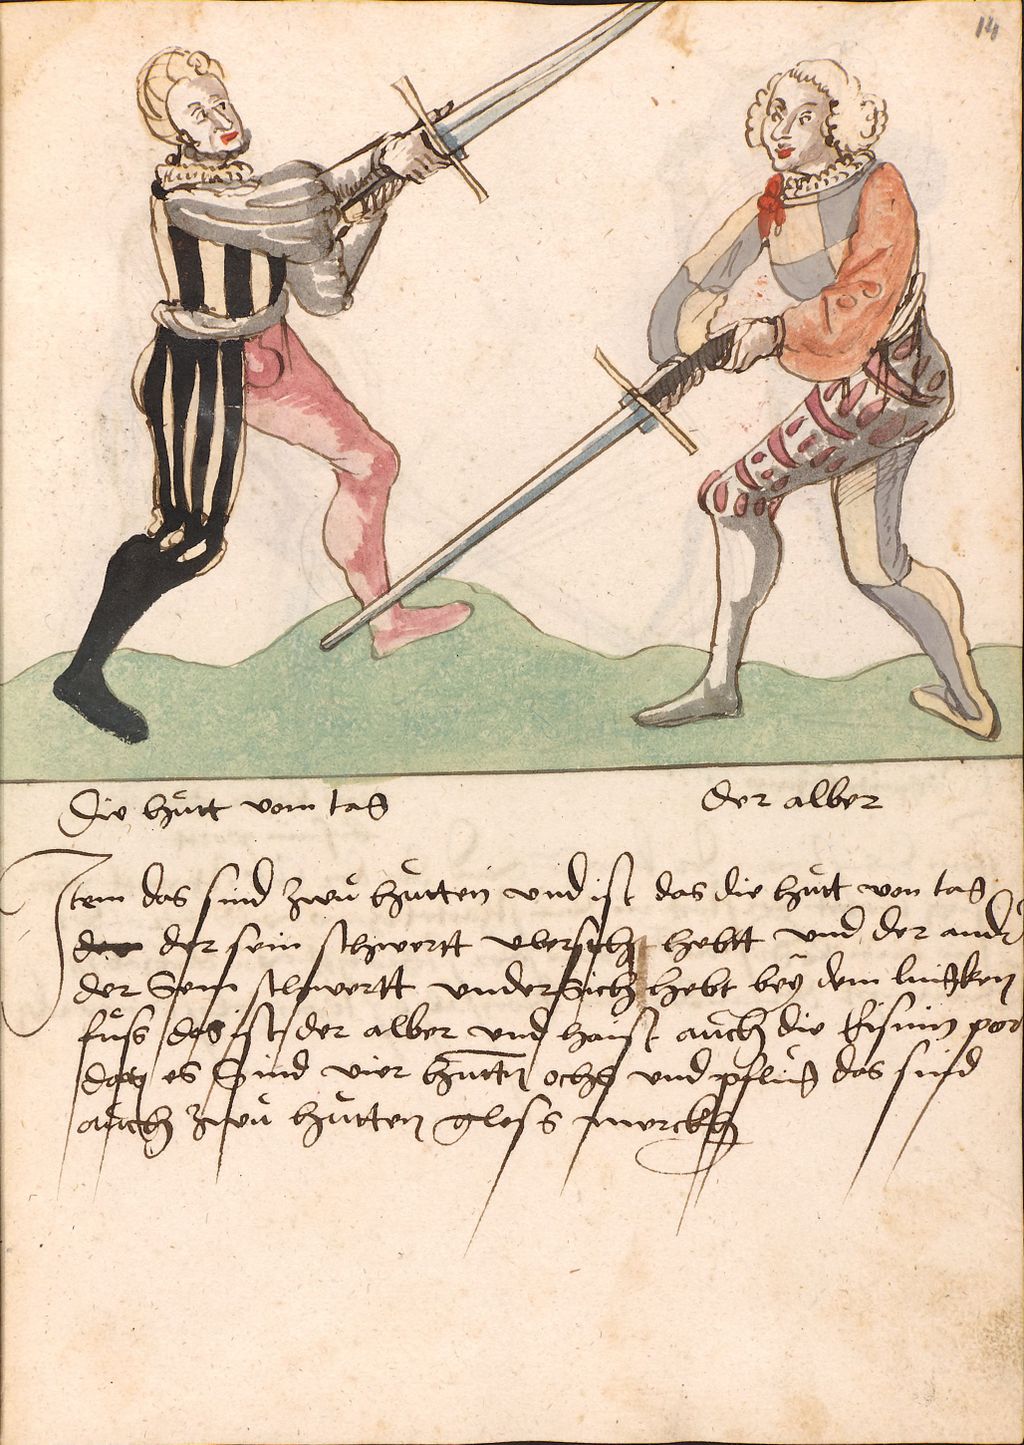 14
Die hůtt vom tag
der alber
Item das sind zwu hůtten und ist das die hůtt von tag
der sein schwertt ubersich hebtt und der ander
der Sein schwertt undersich hebt beÿ dem lingken
fůss das ist der alber und haist auch die Eisnin por
das es Sind vier hutten ochs und pflůg das sind
auch zwu hůtten gloss merckh